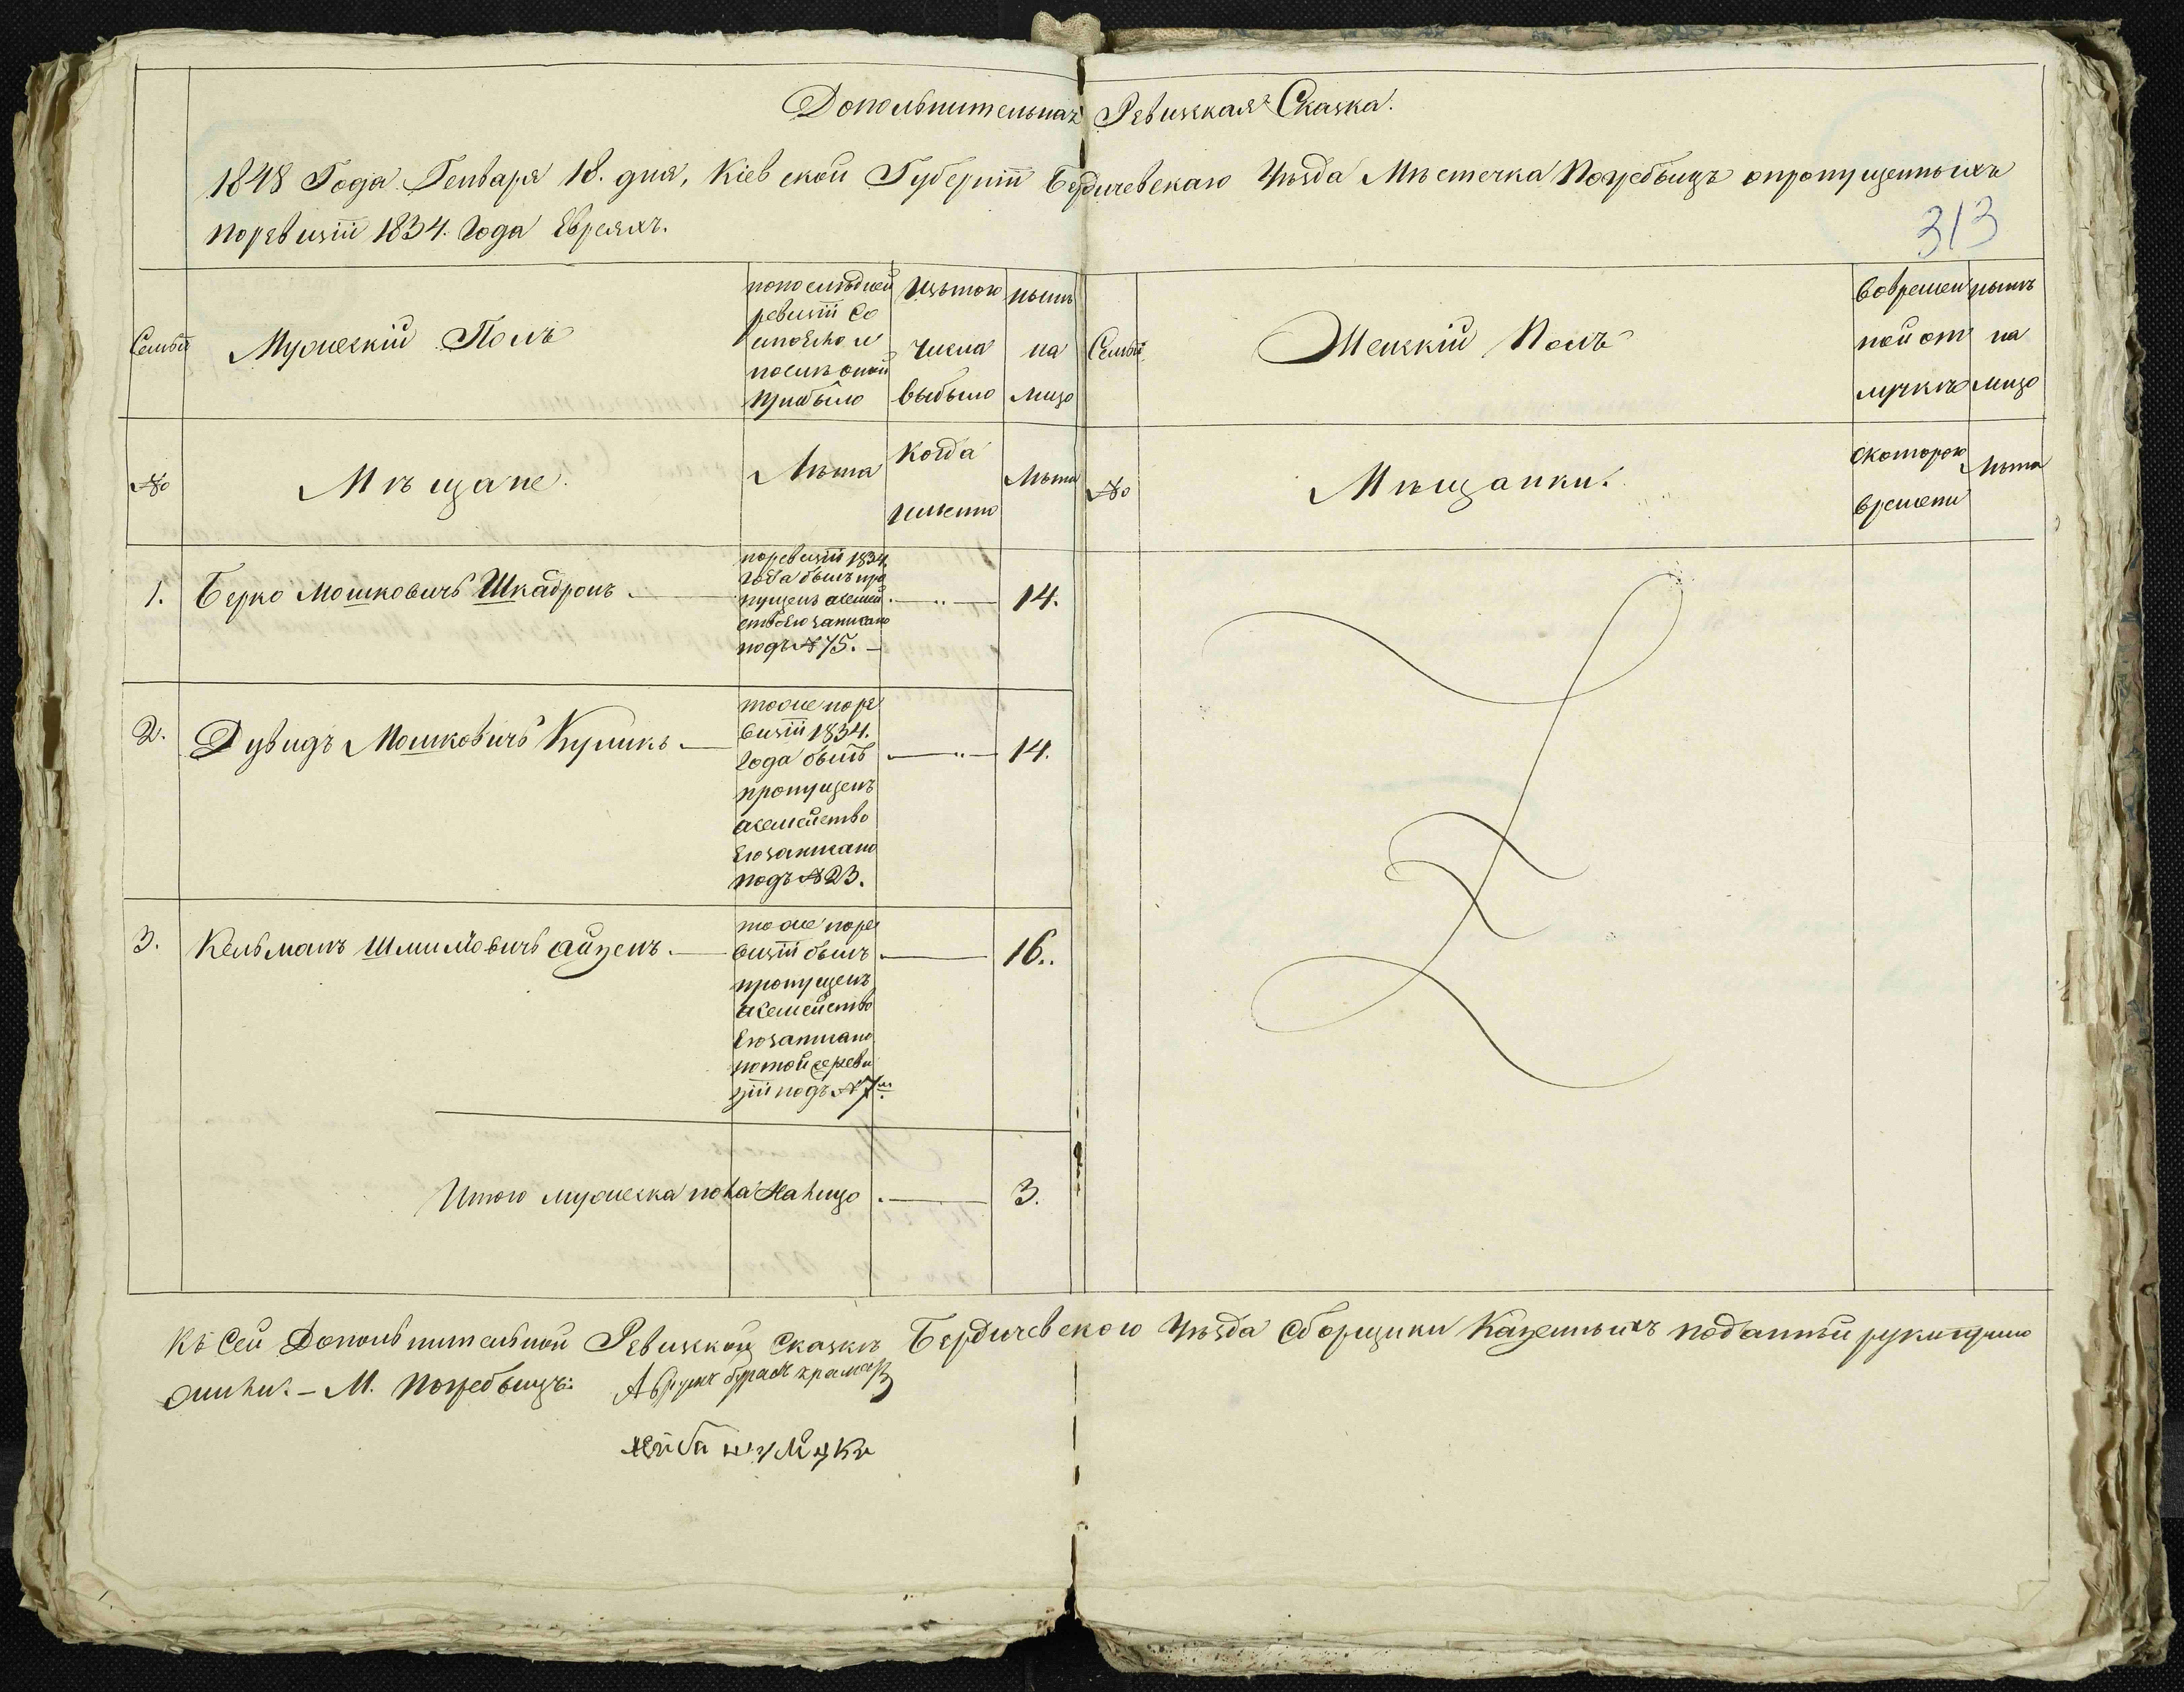 Дополнительная Ревизкая Сказка.
1848 Года Генваря 18. дня, Кіевской Губерніи Бердичевскаго Уѣзда Мѣстечка Погребыщъ о пропущенныхъ
по ревизіи 1834. года Евреяхъ.
313
Семьи
Мужескій Полъ
по последней
ревизіи Со
стояло и
послѣ оной
прибыло
Изъ того
числа
выбыло
нынѣ
на
лицо
Семьи
Женскій Полъ
Во времен
ной от
лучкѣ
нынѣ
на
лицо
№
Мѣщане.
Лѣта
Когда
именно
Лѣта
№
Мѣщанки.
С котораго
времени
Лѣта
1.
Берко Мошковичъ Шкадронъ.
по ревизіи 1834.
года былъ про
пущенъ а семей
ство его записано
подъ № 75.
14.
2.
Дувидъ Мошковичъ Куликъ
тоже по ре
визіи 1834.
года былъ
пропущенъ
а семейство
его записано
подъ № 23.
14.
3.
Кельманъ Шлиомовичъ Айзенъ.
тоже по ре
визіи былъ
пропущенъ
а семейство
его записано
по той же реви
зіи подъ № 7м.
16.
Итого мужеска пола на лицо
3.
Къ Сей Дополнительной Ревизкой Сказкѣ Бердичевского Уѣзда Сборщики Казенныхъ податтей руку прило
жили. – М. Погребыщъ: Аврумъ крамаръ